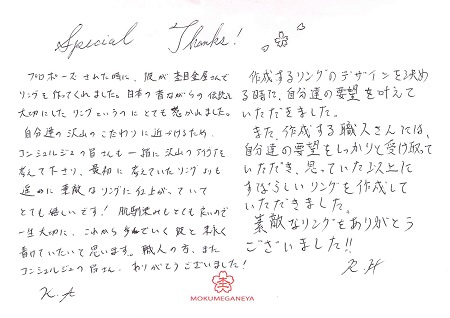 Special Thanks!
プロポーズされた時に、彼が杢目金屋さんで
リングを作ってくれました。日本の昔ながらの伝統を
大切にしたリングというのにとても惹かれました。
自分達の沢山のこだわりに近づけるため、
コンシェルジュの皆さんも一緒に沢山のアイデアを
考えて下さり、最初に考えていたリングよりも
遥かに素敵なリングに仕上がっていて
とても嬉しいです!肌馴染みもとても良いので
一生大切に、これから歩んでいく彼と末永く
着けていたいと思います。職人の方、また
コンシェルジュの皆さん、ありがとうございました!
K.A
作成するリングのデザインを決め
る時に、自分達の要望を叶えて
いただきました。
また、作成する職人さんには、
自分達の要望をしっかりと受け取って
いただき、思っていた以上に
すばらしいリングを作成して
いただきました。
素敵なリングをありがとう
ございました!!
R.H
MOKUMEGANEYA